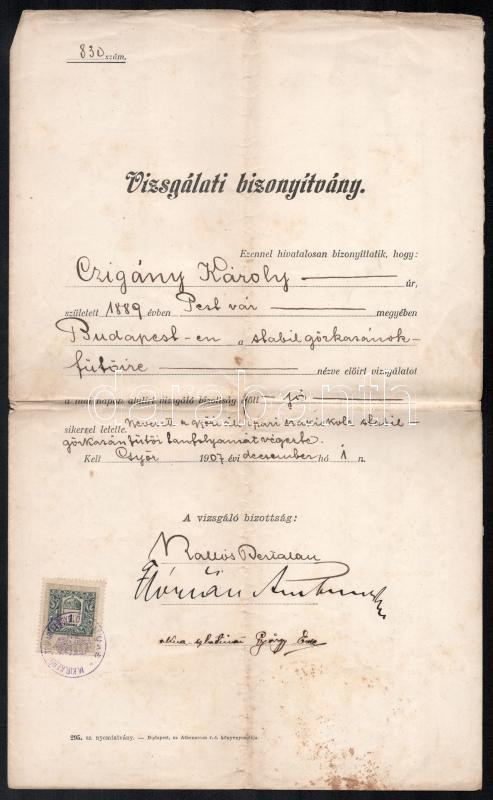 830 szám.
Vizsgálati bizonyítvány.
Ezennel hivatalosan bizonyittatik, hogy:
Czigány Károly úr,
született 1889 évben Pest vár megyében
Budapest-en a stabil gőzkazánok-
fűtőire nézve előirt vizsgálatot
a mai napon alulirt vizsgáló bizottság előtt jó
sikerrel letette. Nevezett a győri ipari szakiskola stabil
gőzkazánfűtői tanfolyamát végezte.
Kelt Győr 1907 évi december hó 1 n.
A vizsgáló bizottság:
Kallós Bertalan
Flórián
György
295. sz. nyomtatvány. — Budapest, az Athenaeum r.-t. könyvnyomdája.
darabanth